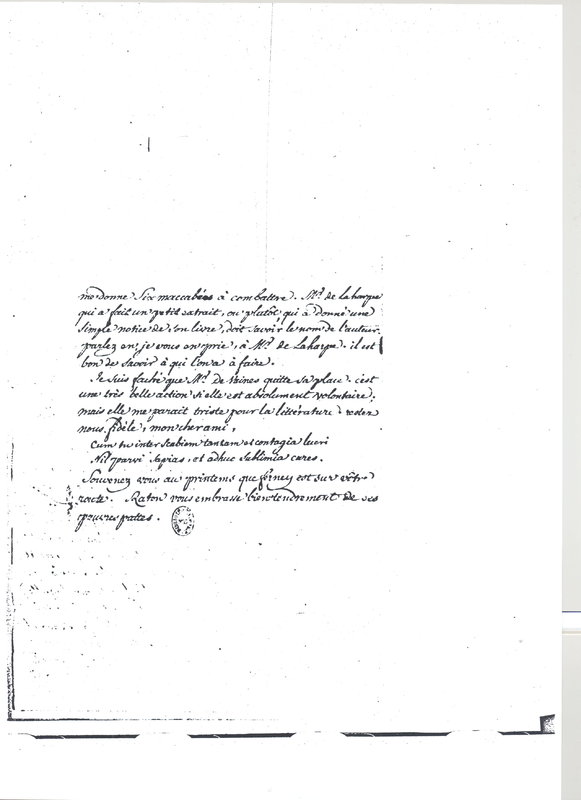 me donne Six maccabées à combattre. Mr. de Laharpe
qui a fait un petit extrait, ou plutôt qui a donné une
simple notice de son livre, doit savoir le nom de l'auteur.
parlez en, je vous en prie, à Mr. de Laharpe. il est
bon de savoir à qui l'on a à faire.
Je suis faché que Mr. de Vaines quitte sa place. c'est
une très belle action s'il elle est absolument volontaire.
mais elle me parait triste pour la littérature.
nous fidèle, mon cher ami,
Cum tu inter scabiem tantam et contagia lucri
Nil parvi sapias, et adhuc sublimia cures.
Souvenez vous au printems que ferney est sur vôtre
route. Raton vous embrasse bien tendrement de ses
pauvres pattes.